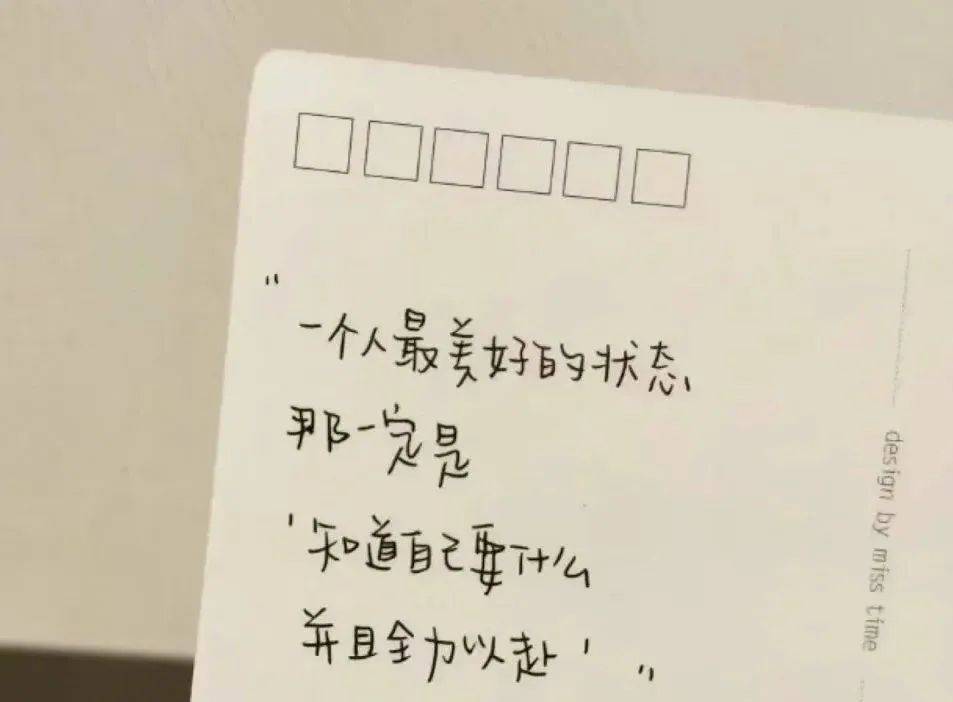 "一个人最美好的状态
那一定是
'知道自己要什么
并且全力以赴' "
design by miss time